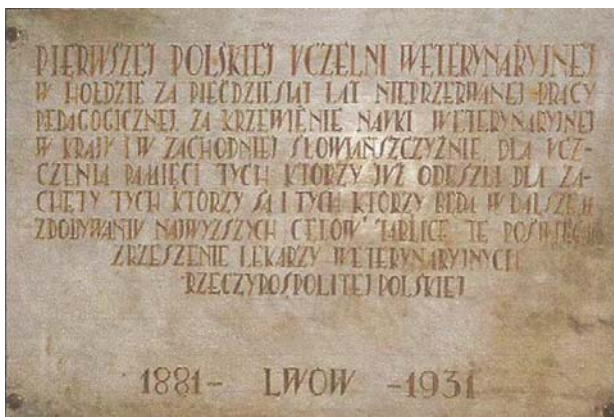 PIERWSZEJ POLSKIEJ UCZELNI WETERYNARYJNEJ
W HOŁDZIE ZA PIĘĆDZIESIĄT LAT NIEPRZERWANEJ PRACY
PEDAGOGICZNEJ ZA KRZEWIENIE NAUKI WETERYNARYJNEJ
W KRAJU I W ZACHODNIEJ SŁOWIAŃSZCZYŹNIE DLA UCZ-
CZENIA PAMIĘCI TYCH KTÓRZY JUŻ ODESZLI DLA ZA-
CHĘTY TYCH KTÓRZY SĄ I TYCH KTÓRZY BĘDĄ W DALSZEM
ZDOBYWANIU NAJWYŻSZYCH CELÓW TABLICĘ TĘ POŚWIĘCA
ZRZESZENIE LEKARZY WETERYNARYJNYCH
RZECZYPOSPOLITEJ POLSKIEJ
1881 - LWÓW - 1931